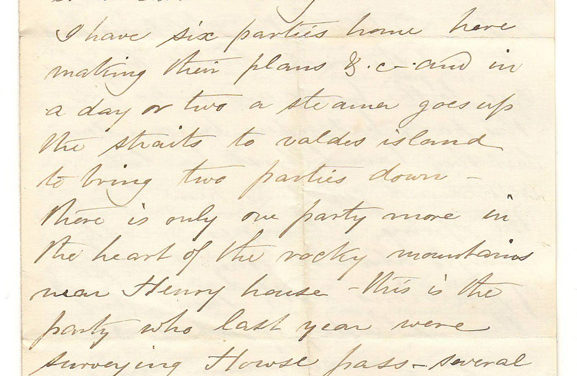 I have six parties home here
making their plans &.c. and in
a day or two a steamer goes up
the straits to valdes island
to bring two parties down –
there is only one party more in
the heart of the rocky mountains
near Henry house – this is the
party who last year were
surveying Howse pass – several